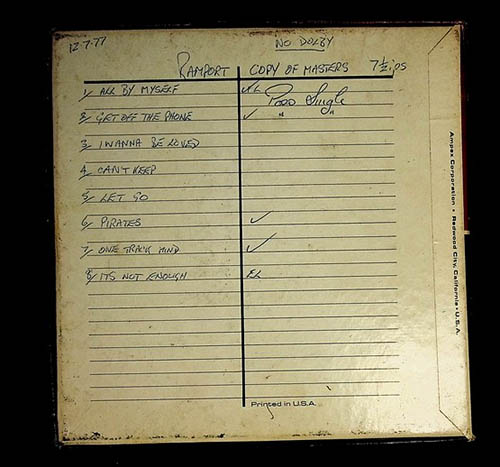 12.7.77
NO DOLBY
RAMPORT COPY OF MASTERS 7½ips
1/ ALL BY MYSELF
2/ GET OFF THE PHONE ✓ " "
3/ I WANNA BE LOVED
4/ CAN'T KEEP
5/ LET GO
6/ PIRATES ✓
7/ ONE TRACK MIND ✓
8/ ITS NOT ENOUGH
Printed in U.S.A.
Ampex Corporation • Redwood City, California • U.S.A.